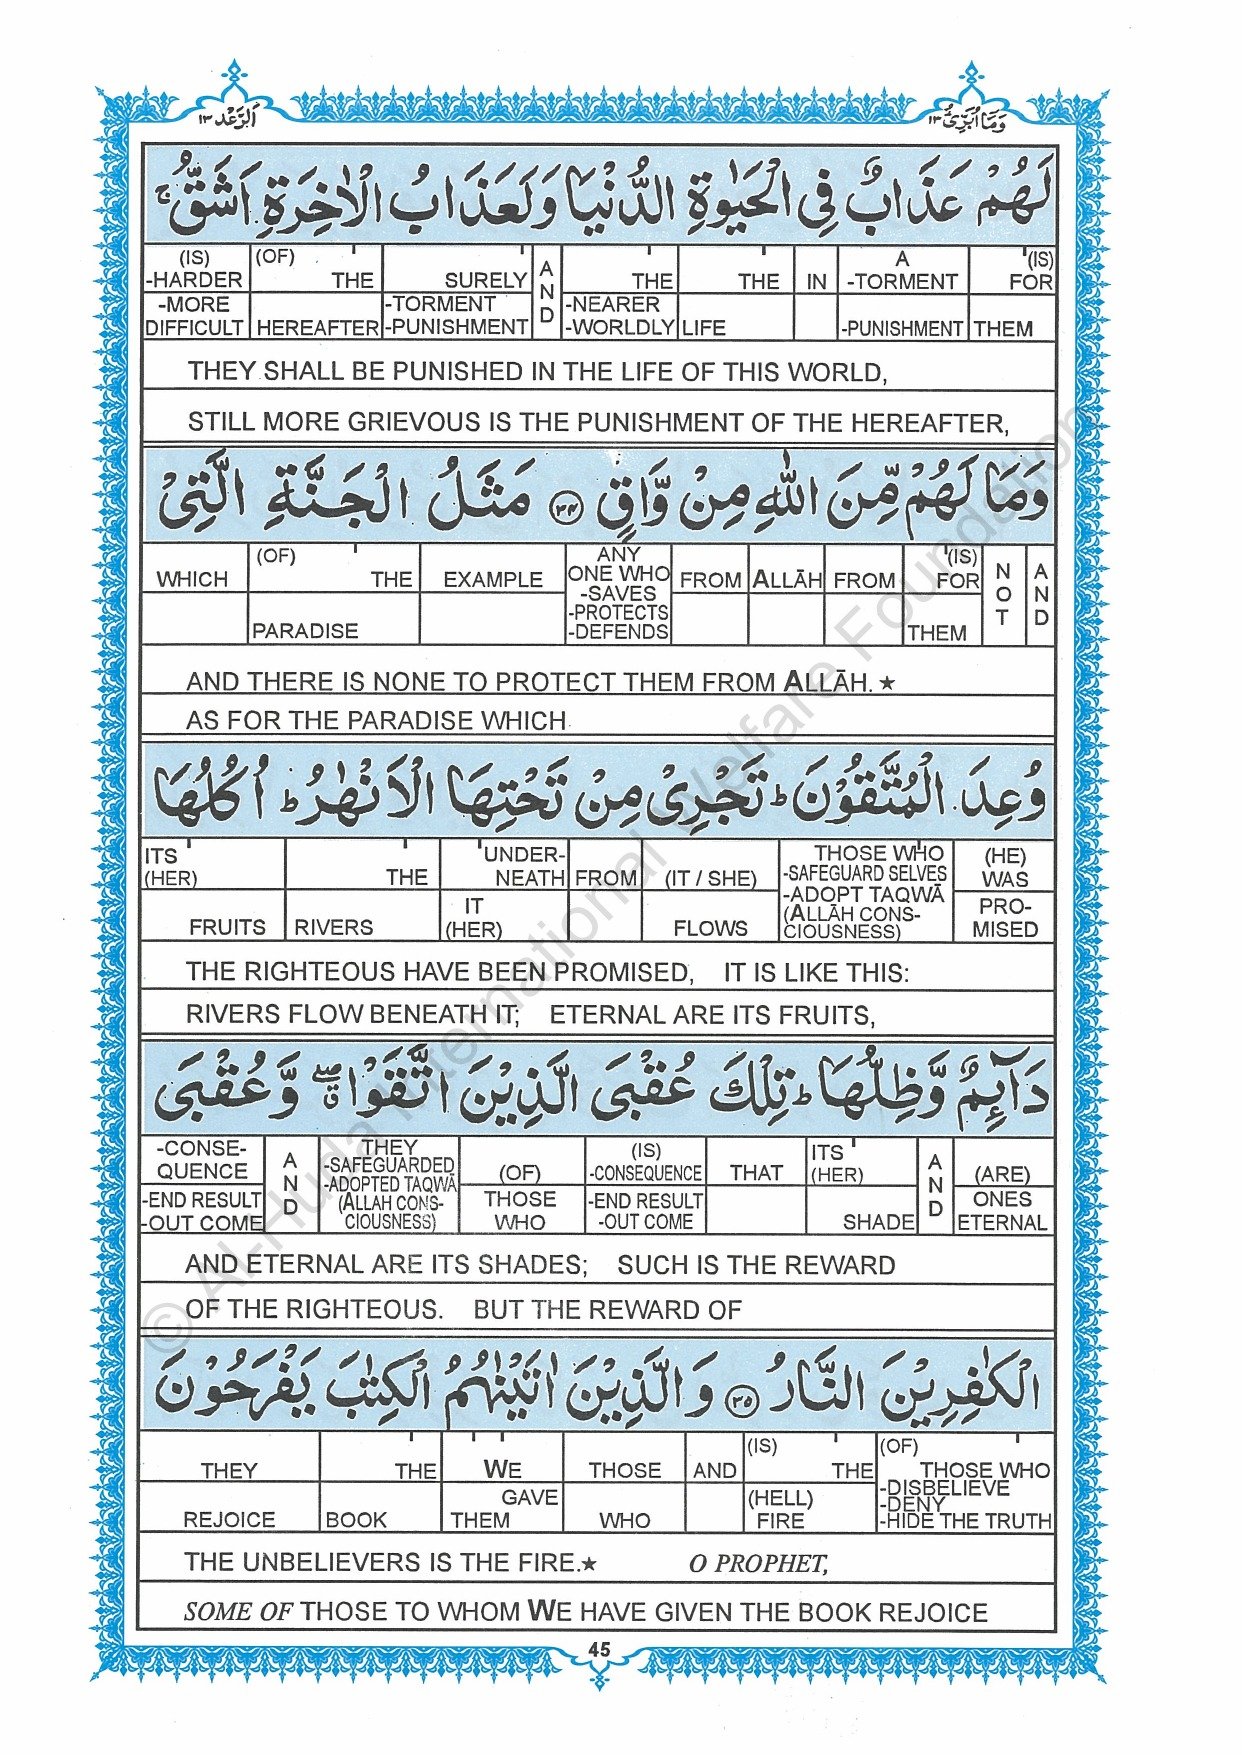 اَلرَّعْد ١٣
وَمَا اُبَرِّئُ ١٣
لَهُمْ عَذَابٌ فِى الْحَيٰوةِ الدُّنْيَا وَلَعَذَابُ الْاٰخِرَةِ اَشَقُّ ۚ
(IS) (OF) THE SURELY AND THE THE IN A (IS)
-HARDER -TORMENT FOR
-MORE -TORMENT -NEARER
DIFFICULT HEREAFTER -PUNISHMENT -WORLDLY LIFE -PUNISHMENT THEM
THEY SHALL BE PUNISHED IN THE LIFE OF THIS WORLD,
STILL MORE GRIEVOUS IS THE PUNISHMENT OF THE HEREAFTER,
وَمَا لَهُمْ مِّنَ اللّٰهِ مِنْ وَّاقٍ ٣٤ مَثَلُ الْجَنَّةِ الَّتِىْ
(OF) ANY (IS)
WHICH THE EXAMPLE ONE WHO FROM ALLĀH FROM FOR NOT AND
-SAVES
-PROTECTS
PARADISE -DEFENDS THEM
AND THERE IS NONE TO PROTECT THEM FROM ALLĀH.★
AS FOR THE PARADISE WHICH
وُعِدَ الْمُتَّقُوْنَ ؕ تَجْرِىْ مِنْ تَحْتِهَا الْاَنْهٰرُ ؕ اُكُلُهَا
ITS UNDER- THOSE WHO (HE)
(HER) THE NEATH FROM (IT / SHE) -SAFEGUARD SELVES WAS
IT -ADOPT TAQWĀ PRO-
(HER) (ALLĀH CONS- MISED
FRUITS RIVERS FLOWS CIOUSNESS)
THE RIGHTEOUS HAVE BEEN PROMISED, IT IS LIKE THIS:
RIVERS FLOW BENEATH IT; ETERNAL ARE ITS FRUITS,
دَآئِمٌ وَّظِلُّهَا ؕ تِلْكَ عُقْبَى الَّذِيْنَ اتَّقَوْا ۖۗ وَّعُقْبَى
-CONSE- THEY (IS) ITS
QUENCE AND -SAFEGUARDED (OF) -CONSEQUENCE THAT (HER) AND (ARE)
-ADOPTED TAQWĀ
-END RESULT (ALLAH CONS- THOSE -END RESULT ONES
-OUT COME CIOUSNESS) WHO -OUT COME SHADE ETERNAL
AND ETERNAL ARE ITS SHADES; SUCH IS THE REWARD
OF THE RIGHTEOUS. BUT THE REWARD OF
الْكٰفِرِيْنَ النَّارُ ٣٥ وَالَّذِيْنَ اٰتَيْنٰهُمُ الْكِتٰبَ يَفْرَحُوْنَ
(IS) (OF)
THEY THE WE THOSE AND THE THOSE WHO
-DISBELIEVE
GAVE (HELL) -DENY
REJOICE BOOK THEM WHO FIRE -HIDE THE TRUTH
THE UNBELIEVERS IS THE FIRE.★ O PROPHET,
SOME OF THOSE TO WHOM WE HAVE GIVEN THE BOOK REJOICE
45
© Al-Huda International Welfare Foundation